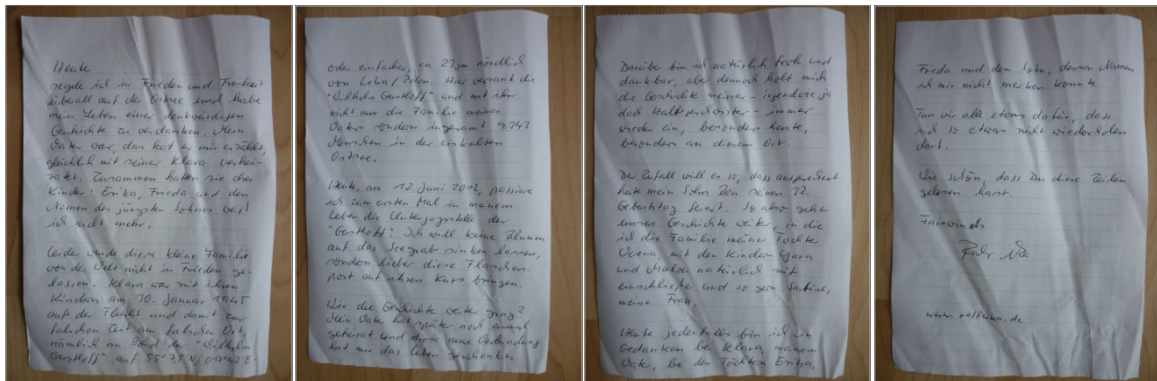 Heute
segle ich in Frieden und Freiheit
überall auf der Ostsee und habe
mein Leben einer denkwürdigen
Geschichte zu verdanken. Mein
Vater war, das hat er mir erzählt,
glücklich mit seiner Klara verhei-
ratet. Zusammen hatten sie drei
Kinder: Erika, Frieda und den
Namen des jüngsten Sohnes weiß
ich nicht mehr.
Leider wurde diese kleine Familie
von der Welt nicht in Frieden ge-
lassen. Klara war mit ihren
Kindern am 30. Januar 1945
auf der Flucht und damit zur
falschen Zeit am falschen Ort,
nämlich an Bord der "Wilhelm
Gustloff" auf 55°07,5'N,
oder einfacher, ca. 23 sm nördlich
von Leba/Polen. Hier versank die
"Wilhelm Gustloff" und mit ihr
nicht nur die Familie meines
Vaters sondern insgesamt 9.343
Menschen in der eiskalten
Ostsee.
Heute, am 12. Juni 2012, passiere
ich zum ersten Mal in meinem
Leben die Untergangsstelle der
"Gustloff". Ich will keine Blumen
auf das Seegrab sinken lassen,
sondern lieber diese Flaschen-
post auf ihren Kurs bringen.
Wie die Geschichte weiter ging?
Mein Vater hat später noch einmal
geheiratet und diese neue Verbindung
hat mir das Leben geschenkt.
Darüber bin ich natürlich froh und
dankbar, aber dennoch holt mich
die Geschichte meiner - irgendwie ja
doch Halbgeschwister - immer
wieder ein, besonders heute,
besonders an diesem Ort.
Der Zufall will es so, dass ausgerechnet
heute mein Sohn Ben seinen 22.
Geburtstag feiert. So also geht
unsere Geschichte weiter, in die
ich die Familie meiner Tochter
Verena mit den Kindern
und natürlich mit
einschließe und so gern
meine Frau.
Heute jedenfalls bin ich in
Gedanken bei Klara, meinem
Vater, bei den Töchtern Erika,
Frieda und dem Sohn, dessen Namen
ich mir nicht merken konnte.
Tun wir alle etwas dafür, dass
sich so etwas nicht wiederholen
darf.
Wie schön, dass Du diese Zeilen
gelesen hast.
Fairwinds